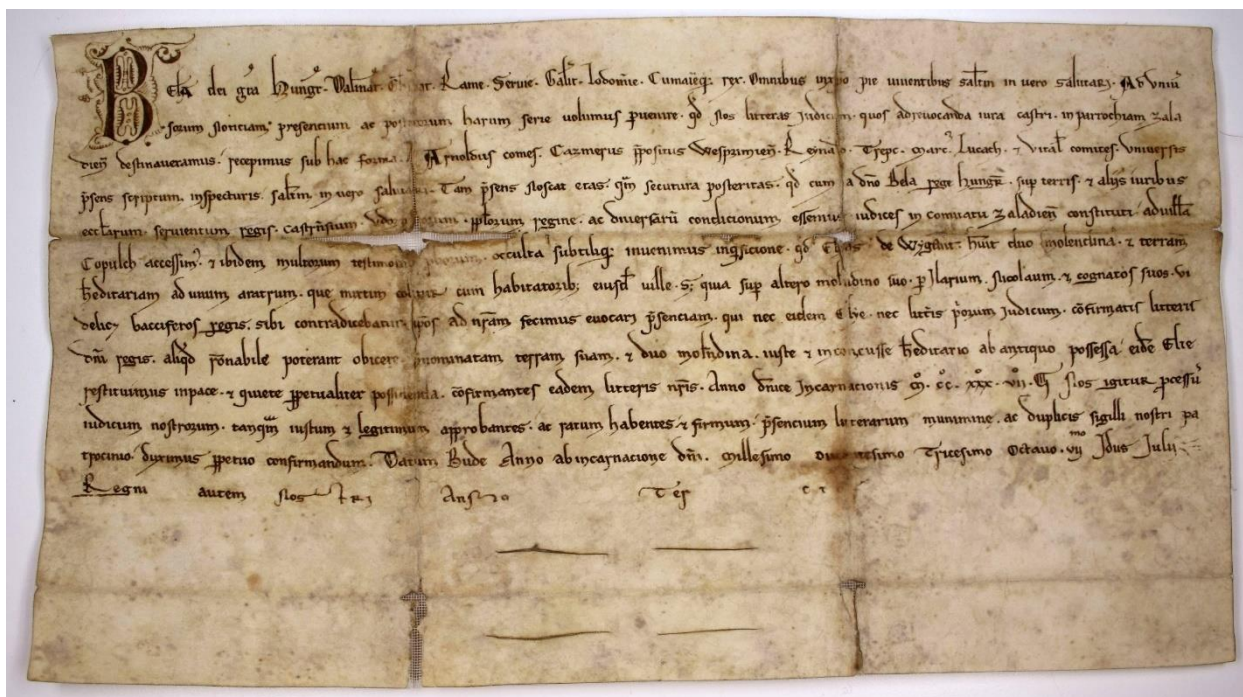 Bela dei gra Hungr. Dalmat. Rame. Servie. Galic. Lodom̄ie. Cumanieq; rex. Omnibus in xpo pie viventibus salt̄m in vero salutari. Ad vniv̄
sorum noticiam presencium ac posterorum harum serie volumus p̄venire. qd nos litteras judicum. quos ad revocanda iura castri. in parrochiam zala
dien̄ destinaveramus. recepimus sub hac forma. Arnoldus comes. Cazmerus p̄positus Wesprimien̄. Reynald. Trepc. Marc. Lucach. ⁊ vital comites. vniversis
p̄sens scriptum inspecturis. salt̄m. in vero salutari. Tam p̄sens noscat etas. qm̄ secutura posteritas. qd cum a dn̄o Bela rege hungr̄. sup terris. ⁊ alijs iuribus
eccl̄arum. servientum regis. castren̄sium. pplorum regine. ac diversarū condicionum essemus iudices in comitatu zaladien̄ constituti. ad villā
Copulch accessim̄. ⁊ ibidem multorum testimonio occulta subtiliq; invenimus inq̄sicione. qd de hūit duo molendina. ⁊ terram
h̄editariam ad unum aratrum. que mixtim cum habitatorib; eiusd̄ ville. S; quia sup altero molndino suo. p Ilarium. Nicolaum. ⁊ cognatos suos. vi
delic; bacciferos regis. sibi contradicebatur. ip̄os ad nr̄am fecimus evocari p̄senciam. qui nec eidem Elye. nec litt̄is p̄orum iudicum. cōfirmatis litteris
dn̄i regis. aliq̄d r̄onabile poterant obicere. prenominatam terram suam. ⁊ duo molndina. iuste ⁊ inconcusse h̄editario ab antiquo possessa eidē Elie
restituimus in pace. ⁊ quiete pp̄etualiter possidenda. cōfirmantes eadem litteris nr̄is. Anno dn̄ice Incarnacionis M̊. c̊c̊. xxx̊. vii̊. Nos igitur pcessū
iudicum nostrorum. tanqm̄ iustum ⁊ legitimum approbantes. ac ratum habentes ⁊ firmum. p̄sencium litterarum munimine. ac duplicis sigilli nostri pa
trocinio. duximus pp̄etuo confirmandum. Datum Bude Anno ab incarnacione dn̄i. Millesimo ducentesimo Tricesimo Octavo. vii̊ Idus Julii
Regni autem nostri Anno Ter